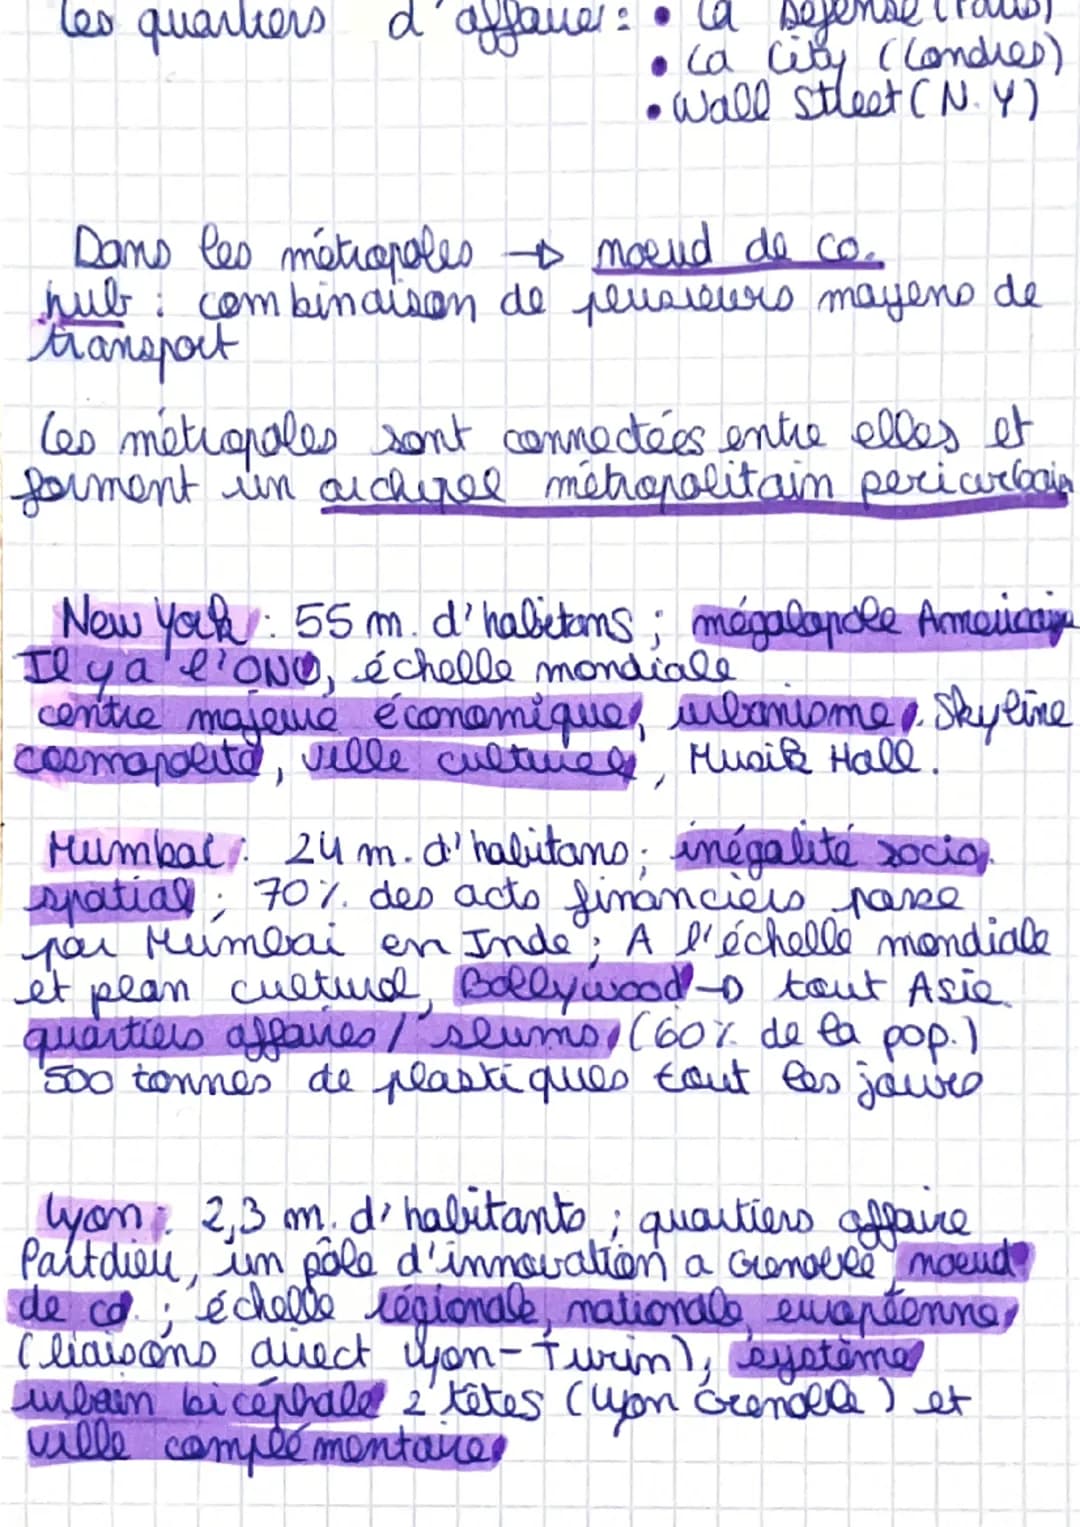 les quartiers d'affaires : • La Défense (Paris)
• La City (Londres)
• Wall Street (N.Y)
Dans les métropoles → noeud de co.
hub : combinaison de plusieurs moyens de
transport
Les métropoles sont connectées entre elles et
forment un archipel métropolitain periurbain
New York : 55 m. d'habitans ; mégalopole Americaine
Il y a l'ONU, échelle mondiale
centre majeure économique, urbanisme, Skyline
cosmopolite, ville culturel, Musik Hall.
Mumbai : 24 m. d'habitans ; inégalité socio
spatial ; 70% des acts financiers passe
par Mumbai en Inde ; A l'échelle mondiale
et plan culturel, Bollywood → tout Asie
quartiers affaires / slums, (60% de la pop.)
500 tonnes de plastiques tout les jours
Lyon : 2,3 m. d'habitants ; quartiers affaire
Partdieu, un pôle d'innovation a Grenoble noeud
de co. ; échelle régionale, nationale, européenne,
(liaisons direct Lyon-Turin), système
urbain bicéphale 2 têtes (Lyon Grenoble) et
ville complémentaire